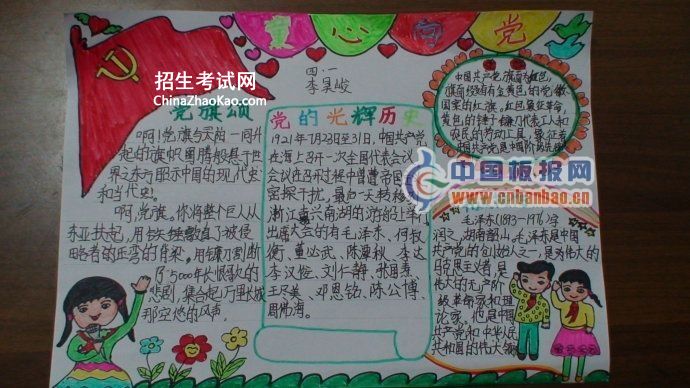 童心向党
四·一
李昊峻
招生考试网
ChinaZhaoKao.com
党旗颂
啊！党旗与天的一同升
起的旗帜
界东方昭示中国的现代史
和当代史！
啊，党旗。你将整个巨人从
东亚扶起，用
略者的歪弯的脊梁。用镰刀割断
了5000年长恨歌的
悲剧，集合起万里长城
那空他的风声。
党的光辉历史
1921年7月23日至31日，中国共产党
在上海召开一次全国代表会议
会议在召开过程中曾遭帝国
密探干扰，最后一天转移
浙江嘉兴南湖的游船上举行
出席大会的有毛泽东、何叔
衡、董必武、陈潭秋、李达
李汉俊、刘仁静、张国焘、
王尽美、邓恩铭、陈公博、
周佛海。
中国共产党党旗为红色，
旗面缀有金黄色的党徽
国家的红旗，红色象征革命，
黄色的锤子镰刀代表工人和
农民的劳动工具，象征着
中国共产党是中国
中国板报网
www.cnbanbao.cn
毛泽东(1893-1976)字
润之，湖南韶山。毛泽东是中国
共产党的创始人之一，是为伟大的
马克思主义者，是
伟大的无产阶
级革命家和理
论家，他是中国
共产党和中华人民
共和国的伟大领